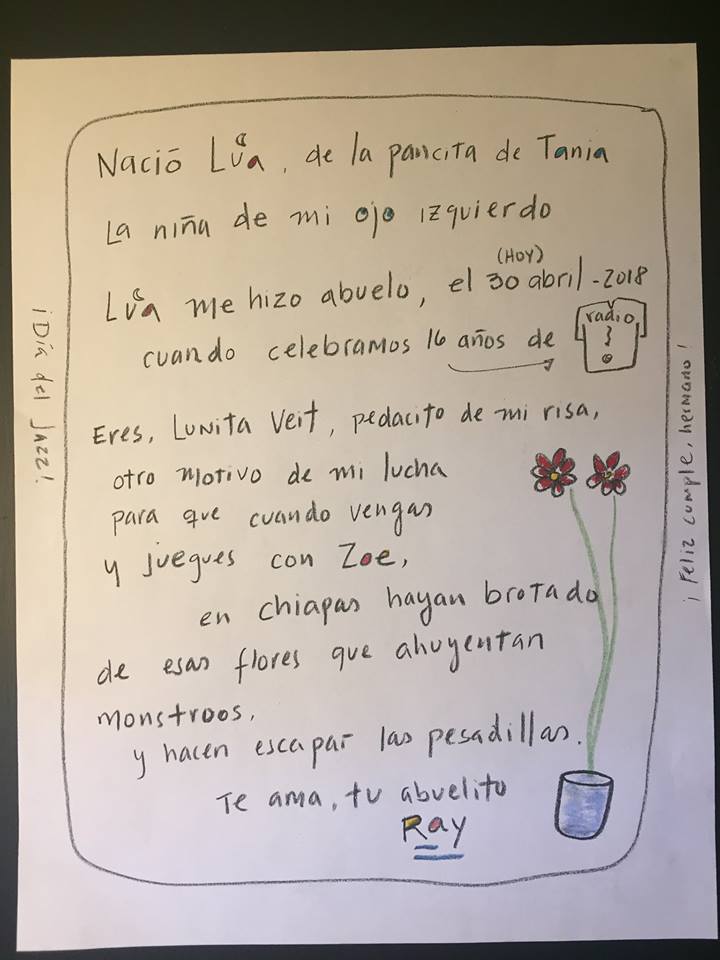 Nació Lúa, de la pancita de Tania
La niña de mi ojo izquierdo
(HOY)
Lúa me hizo abuelo, el 30 abril - 2018
cuando celebramos 16 años de radio
Eres, Lunita Veit, pedacito de mi risa,
otro motivo de mi lucha
para que cuando vengas
y juegues con Zoe,
en chiapas hayan brotado
de esas flores que ahuyentan
monstroos,
y hacen escapar las pesadillas.
Te ama, tu abuelito
Ray
¡Día del Jazz!
¡Feliz cumple, hermano!